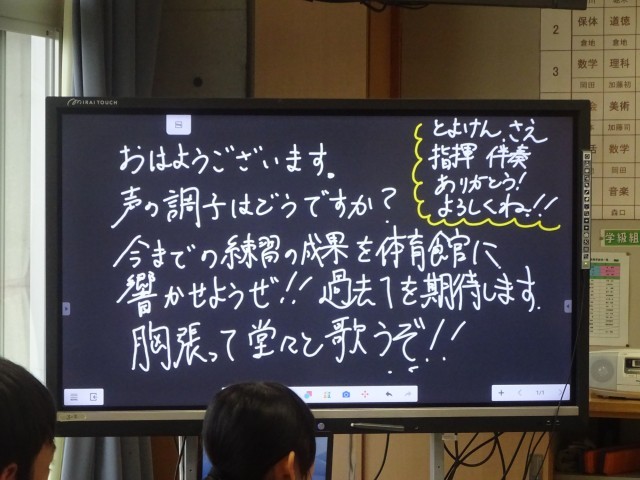 MIRAI TOUCH
おはようございます。
声の調子はどうですか?
今までの練習の成果を体育館に
響かせようぜ!!過去1を期待します.
胸張って堂々と歌うぞ!!
とよけん、さえ
指揮 伴奏
ありがとう!
よろしくね!!
1/1
2
保体 道徳
倉地 倉地
3
数学 理科
岡田 加藤初
美術
加藤司
数学
岡田
音楽
森口
学級組